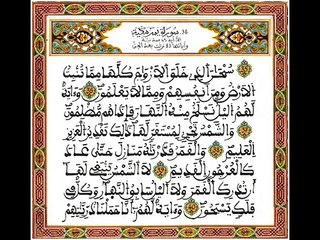 سُبْحَٰنَ ٱلذِے خَلَقَ ٱلَازْوَٰجَ كُلَّهَا مِمَّا تُنۢبِتُ
ٱلَارْضُ وَمِنَ اَنفُسِهِمْ وَمِمَّا لَا يَعْلَمُونَ وَءَايَةٞ
لَّهُمُ ٱليْلُ نَسْلَخُ مِنْهُ ٱلنَّهَارَ فَإِذَا هُم مُّظْلِمُونَ
وَالشَّمْسُ تَجْرِے لِمُسْتَقَرّٖ لَّهَا ذَٰلِكَ تَقْدِيرُ ٱلْعَزِيزِ
ٱلْعَلِيمِ وَالْقَمَرُ قَدَّرْنَٰهُ مَنَازِلَ حَتَّىٰ عَادَ
كَالْعُرْجُونِ ٱلْقَدِيمِ لَا ٱلشَّمْسُ يَنۢبَغِے لَهَا
أَن تُدْرِكَ ٱلْقَمَرَ وَلَا ٱليْلُ سَابِقُ ٱلنَّهَارِ وَكُلّٞ فِے
فَلَكٖ يَسْبَحُونَ وَءَايَةٞ لَّهُمُ أَنَّا حَمَلْنَا ذُرِّيَّٰتِهِمْ